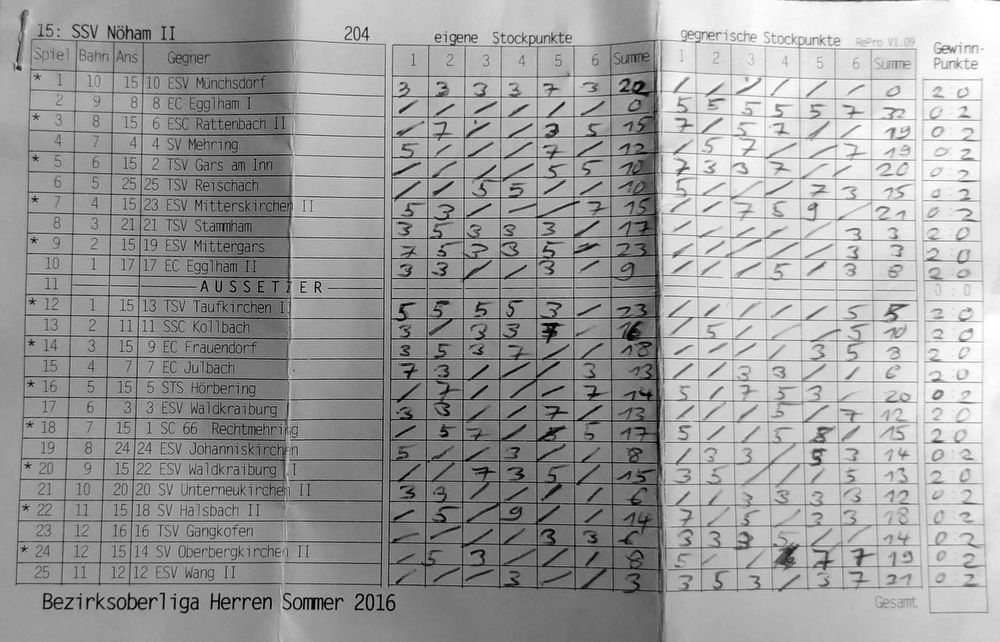 15: SSV Nöham II 204 eigene Stockpunkte gegnerische Stockpunkte RePro V1.09 Gewinn-
Spiel Bahn Ans Gegner 1 2 3 4 5 6 Summe 1 2 3 4 5 6 Summe Punkte
* 1 10 15 10 ESV Münchsdorf 3 3 3 3 7 3 22 / / / / / / 0 2:0
2 9 8 8 EC Egglham I / / / / / / 0 5 5 5 5 5 7 32 0:2
* 3 8 15 6 ESC Rattenbach II / 7 / / 3 5 15 7 / 5 7 / / 19 0:2
4 7 4 4 SV Mehring 5 / / / 7 / 12 / 5 7 / / 7 19 0:2
* 5 6 15 2 TSV Gars am Inn / / / / 5 5 10 7 3 3 7 / / 20 0:2
6 5 25 25 TSV Reischach / / 5 5 / / 10 5 / / / 7 3 15 0:2
* 7 4 15 23 ESV Mitterskirchen II 5 3 / / / 7 15 / / 7 5 9 / 21 0:2
8 3 21 21 TSV Stammham 3 5 3 3 3 / 17 / / / / / 3 3 2:0
* 9 2 15 19 ESV Mittergars 7 5 3 3 5 / 23 / / / / / 3 3 2:0
10 1 17 17 EC Egglham II 3 3 / / 3 / 9 / / / 5 / 3 8 2:0
11 AUSSETZER 0:0
* 12 1 15 13 TSV Taufkirchen I 5 5 5 5 3 / 23 / / / / / 5 5 2:0
13 2 11 11 SSC Kollbach 3 / 3 3 7 / 16 / 5 / / / 5 10 2:0
* 14 3 15 9 EC Frauendorf 3 5 3 7 / / 18 / / / / 3 5 8 2:0
15 4 7 7 EC Julbach 7 3 / / / 3 13 / / 3 3 / / 6 2:0
* 16 5 15 5 STS Hörbering / 7 / / / 7 14 5 / 7 5 3 / 20 0:2
17 6 3 3 ESV Waldkraiburg 3 3 / / 7 / 13 / / / 5 / 7 12 2:0
* 18 7 15 1 SC 66 Rechtmehring / 5 7 / / 5 17 5 / / 5 / 15 2:0
19 8 24 24 ESV Johanniskirchen 5 / / 3 / / 8 / 3 3 / 5 3 14 0:2
* 20 9 15 22 ESV Waldkraiburg I / / 7 3 5 / 15 3 5 / / / 5 13 2:0
21 10 20 20 SV Unterneukirchen II 3 3 / / / / 6 / / 3 3 3 3 12 0:2
* 22 11 15 18 SV Halsbach II / 5 / 9 / / 14 7 / 5 / 3 3 18 0:2
23 12 16 16 TSV Gangkofen / / / / 3 3 6 3 3 3 5 / / 14 0:2
* 24 12 15 14 SV Oberbergkirchen II / 5 3 / / / 8 5 / / 7 7 19 0:2
25 11 12 12 ESV Wang II / / / 3 / / 3 3 5 3 / 3 7 21 0:2
Bezirksoberliga Herren Sommer 2016 Gesamt